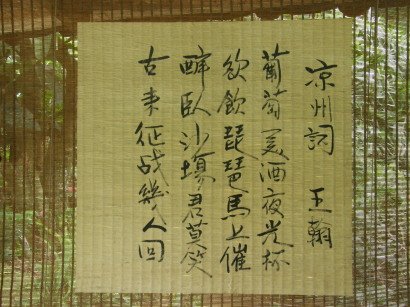 凉州词 王翰
葡萄美酒夜光杯
欲飲琵琶馬上催
醉臥沙場君莫笑
古来征战幾人回